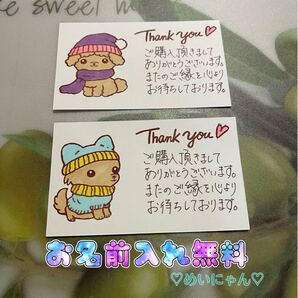 he sweet mem
Thank you♡
ご購入頂きまして
ありがとうございます。
またのご縁を心より
お待ちしております。
Thank you♡
ご購入頂きまして
ありがとうございます。
またのご縁を心より
お待ちしております。
お名前入れ無料
♡めいにゃん♡